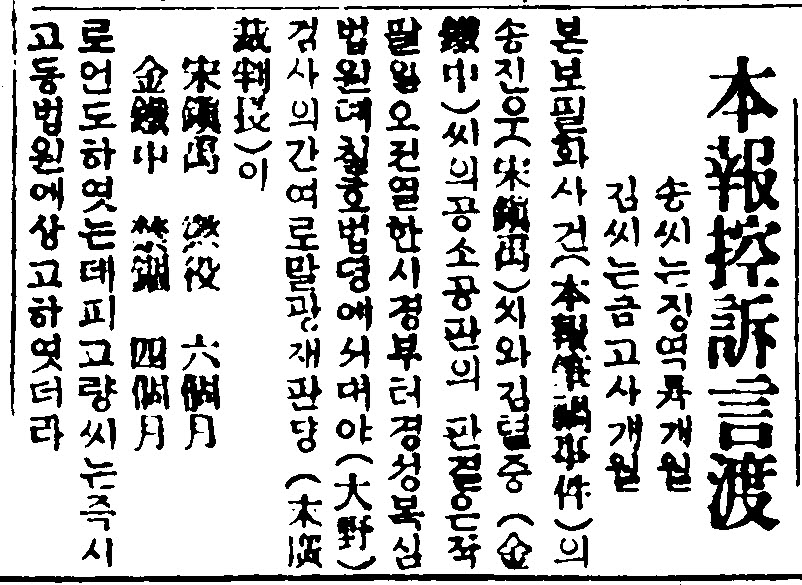 本報控訴言渡
송씨는징역륙개월
김씨는금고사개월
본보필화사건(本報筆禍事件)의
송진우(宋鎭禹)씨와김텰중(金
鐵中)씨의공소공판의 판결은작
팔일오전열한시경부터경성복심
법원뎨칠호법뎡에서대야(大野)
검사의간여로말광재판댱(末廣
裁判長)이
宋鎭禹 懲役 六個月
金鐵中 禁錮 四個月
로언도하엿는데피고량씨는즉시
고등법원에상고하엿더라